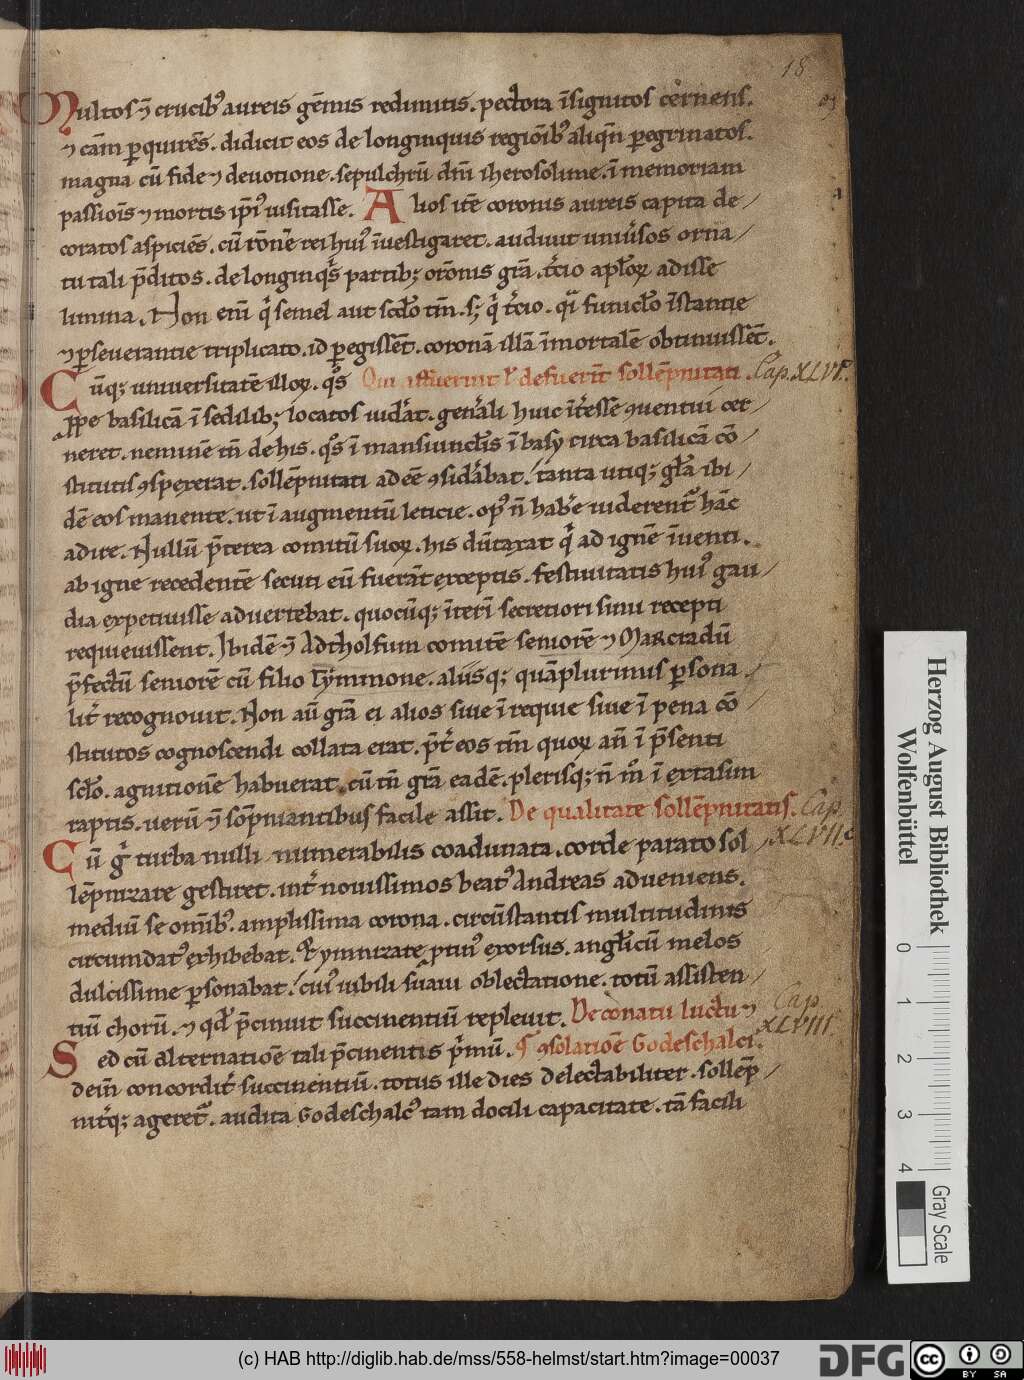 18
Multos ⁊̄ crucibꝰ aureis gēmis redimitis. pectora īsignitos cernens.
⁊ cām ꝑquirēs. didicit eos de longinquis regiōibꝰ aliqn̄ ꝑegrinatos.
magna cū fide ⁊ deuotione. sepulchrū dn̄i iherosolime. ī memoriam
passiois̄ ⁊ mortis ip̄iꝰ uisitasse. Alios itē coronis aureis capita de/
coratos aspiciēs. cū rōnē rei huiꝰ īuestigaret. audiuit uniu̓sos orna/
tu tali p̄ditos. de longinqͥs partibꝫ orōnis grā. t̓cio apl̓oꝝ adisse
limina. Non enī qͥ semel aut scd̓o tm̄. sꝫ qͥ t̓cio. qͣi funicl̓o īstantie
⁊ ꝑseuerantie triplicato. id ꝑegissēt. coronā illā īmortalē obtinuissēt.
Cūqꝫ uniuersitatē illoꝝ. qͦs Qui affuerint ł defuerīt sollēpnitati. Cap. XLVI.
p̄pe basilicā ī sedilibꝫ locatos uid̓at. gen̓ali huic īt̓esse ꝯuentui cer/
neret. neminē tn̄ de his. qͦs ī mansiuncl̓is ī basy circa basilicā cō/
stitutis ꝯspexerat. sollēpnitati adeē ꝯsid̓abat. tanta utiqꝫ gl̓a ibi/
dē eos manente. ut ī augmentū leticie. opꝰ n̄ hab̓e uiderent̓ hāc
adire. Nullū p̄terea comitū suoꝝ. his dūtaxat qͥ ad ignē īuenti.
ab igne recedentē secuti eū fuerāt exceptis. festiuitatis huiꝰ gau/
dia expetiuisse aduertebat. quocūqꝫ īterī secretiori sinu recepti
requieuissent. Ibidē ⁊̄ Adtholfum comitē seniorē ⁊ Marcradū
p̄fectū seniorē cū filio Tȳmmone. aliisqꝫ quāplurimis ꝑsona/
lit̓ recognouit. Non aū grā ei alios siue ī requie siue ī pena cō/
stitutos cognoscendi collata erat. p̄t̓ eos tm̄ quoꝝ an̄ ī p̄senti
scl̓o. agnitionē habuerat. cū tn̄ grā eadē. plerisqꝫ n̄ m̊ ī extasim
raptis. uerū ⁊̄ sōpniantibus facile assit. De qualitate sollēpnitatis. Cap. XLVII.
Cū gͦ turba nulli numerabilis coadunata. corde parato sol/
lēpnizare gestiret. int̓ nouissimos beatꝰ Andreas adueniens.
mediū se om̄ibꝰ. amplissima corona. circūstantis multitudinis
circumdatꝰ exhibebat. Et ymnizare ꝓtinꝰ exorsus. anglicū melos
dulcissime ꝑsonabat. cuiꝰ iubili suaui oblectatione. totū assisten/
tiū chorū. ⁊ qd̓ p̄cinuit succinentiū repleuit. De conatu luctu ⁊ Cap. XLVIII.
Sed cū alternatiōe tali p̄cinentis p̓mū. ꝯsolatiōe Godeschalci.
dein̄ concordit̓ succinentiū. totus ille dies delectabiliter. sollēp/
nit̓qꝫ ageret̓. audita Godeschalcꝰ tam docili capacitate. tā facili
Herzog August Bibliothek
Wolfenbüttel
0
1
2
3
4
Gray Scale
(c) HAB http://diglib.hab.de/mss/558-helmst/start.htm?image=00037
DFG
cc BY SA